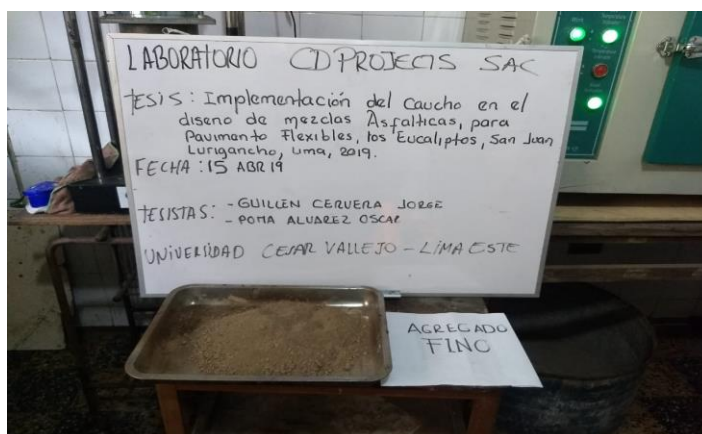 LABORATORIO CDPROJECTS SAC
TESIS: Implementación del Caucho en el
diseno de mezclas Asfalticas, para
Pavimento Flexibles, los Eucaliptos, San Juan
Lurigancho, Lima, 2019.
FECHA: 15 ABR 19
TESISTAS: - GUILLEN CERVERA JORGE
- POMA ALVAREZ OSCAR
UNIVERSIDAD CESAR VALLEJO - LIMA ESTE
AGREGADO
FINO